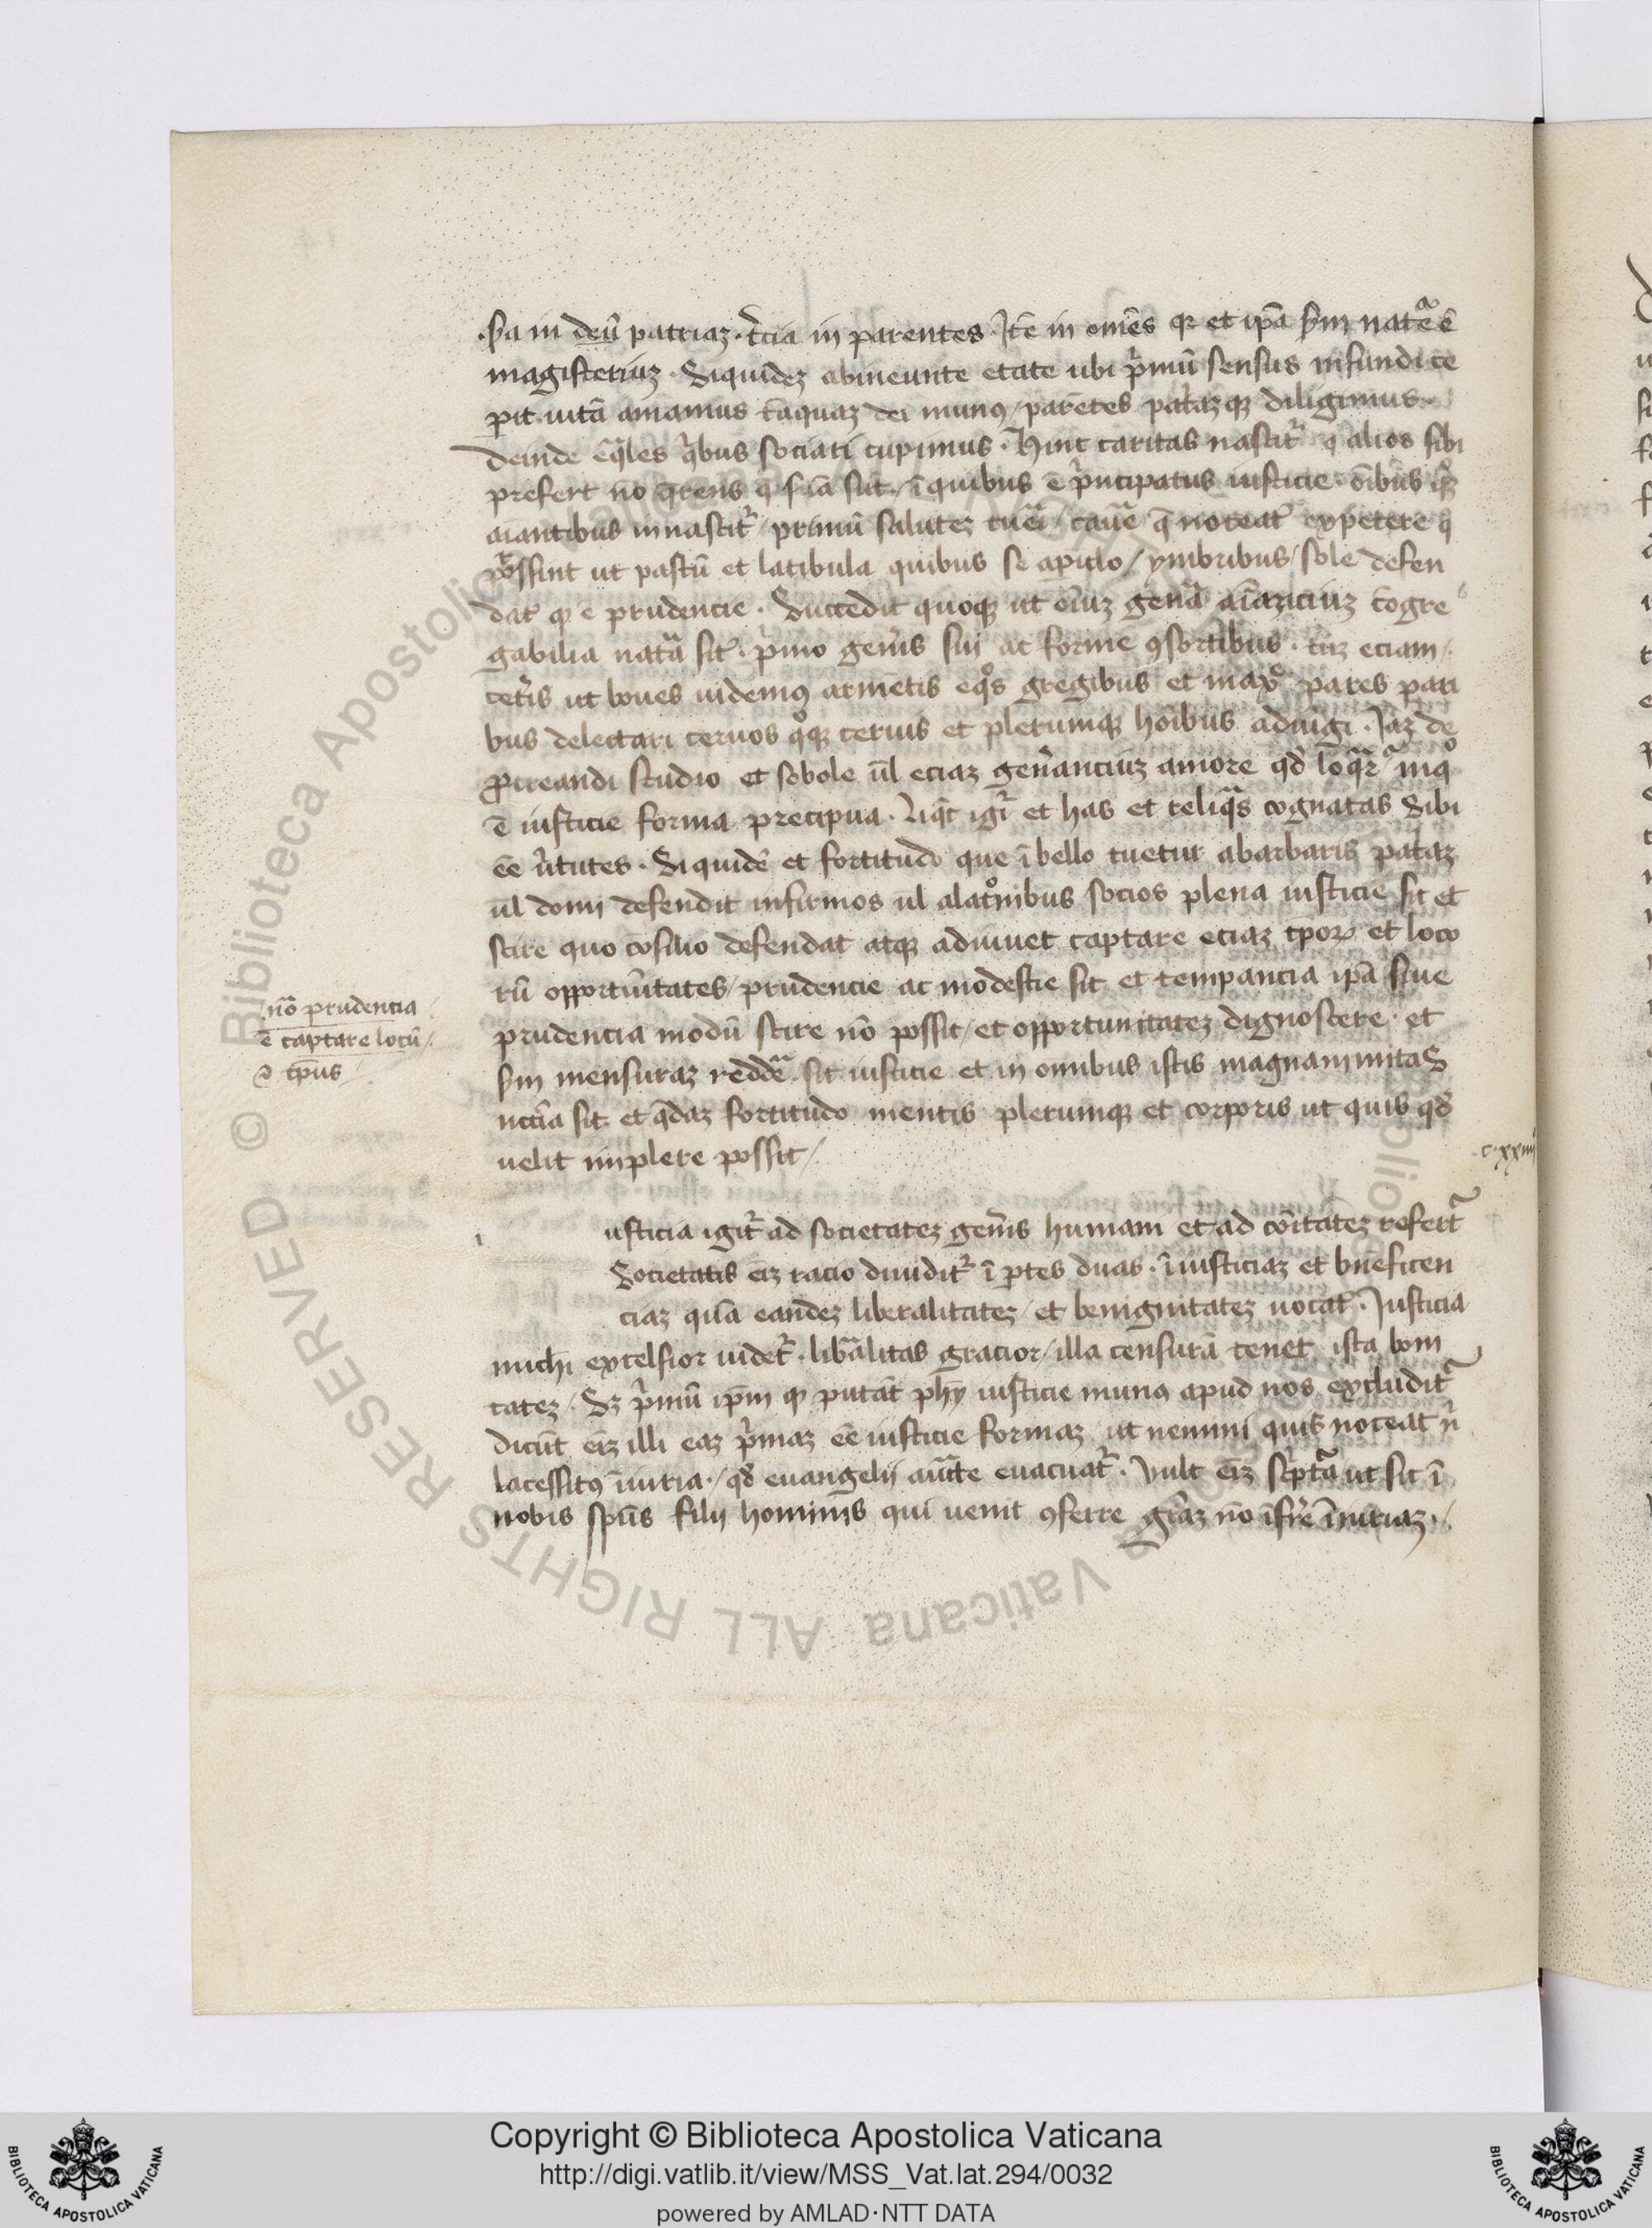 .s̄a in deū patriaz. t̄cia in parentes. Itē in omēs qr et ip̄a s̄m natᵉ ē
magisteriuz. Siquidez abineunte etate ubi p̄mū sensus infundi ce
pit. uitā amamus tāquaz dei munꝰ / parētes pat̄azqꝫ diligimus.
deinde eq̄les q̄bus sociari cupimus. Hinc caritas nascit̄ q̄ alios sibi
prefert nō q̄rens q̄ s̄ua sūt. / ī quibus ē p̄ncipatus iusticie. oībus
aīantibus innascit̄ / primū salutez tueri / cauē q̄ noceāt expetere q̄
p̄ssint ut pastū et latibula quibus se a piclo / ymbribus / sole defen
dāt qꝫ ē prudencie. Succedit quoqꝫ ut oīuz geñā aīaziciuz cogre
gabilia natā sīt. p̄mo geñis sui ac forme ꝯsortibus. tūz eciam /
cet̄is ut boues uidemꝰ armētis eqᵒs gregibus et maxᵉ pares pari
bus delectari ceruos qᵒqꝫ ceruis et plerumqꝫ hoībus adiūgi. Iāz de
ꝓcreandi studio et sobole ūl eciaz geñanciuz amore qd̄ loq̄r / in qᵒ
ē iusticie forma precipua. Liq̄t igr̄ et has et reliq̄s cognatas Sibi
eē ūtutes. Siquidē et fortitudo que ī bello tuetur abarbaris pat̄az
ūl domi defendit infirmos ūl alatᵒnibus socios plena iusticie sit et
scire quo cōsilio defendat atqꝫ adiuuet captare eciaz tp̄oꝝ et loco
rū opportūitates / prudencie ac modestie sit et temp̄ancia ip̄a sine
prudencia modū scire nō possit / et opportunitatez dignoscere. et
s̄m mensuraz reddᵉ sit iusticie et in omnibus istis magnanimitaS
nccīa sit. et q̄daz fortitudo mentis plerumqꝫ et corporis ut quis qd̄
uelit implere possit /
nō prudencia
ē captare locū /
⁊ tp̄us
c. xxiiii
i
usticia igit̄ ad societatez geñis humani et ad cōitatez refert̄
Societatis eīz racio diuidit̄ ī p̄tes duas. ī iusticiaz et bn̄eficen
ciaz quā eandez liberalitatez / et benignitatez uocāt. Iusticia
michi excelsior uidet̄. libālitas gracior / illa censurā tenet ista boni
tatez. Sꝫ p̄mū ip̄m qꝫ putāt ph̄y iusticie munꝰ apud nos excludit̄
dicūt eīz illi eaz p̄maz eē iusticie formaz ut nemini quis noceat n̄
lacessitꝰ īiuria. / qd̄ euangelij auc̄te euacuat̄. Vult eīz sc̄ptā ut sit ī
nobis sp̄us filij hominis qui uenit ꝯferre gr̄az nō īfrē īiuriaz. /
Biblioteca Apostolica Vaticana ALL RIGHTS RESERVED ©
Copyright © Biblioteca Apostolica Vaticana
http://digi.vatlib.it/view/MSS_Vat.lat.294/0032
powered by AMLAD·NTT DATA
BIBLIOTECA APOSTOLICA VATICANA
BIBLIOTECA APOSTOLICA VATICANA